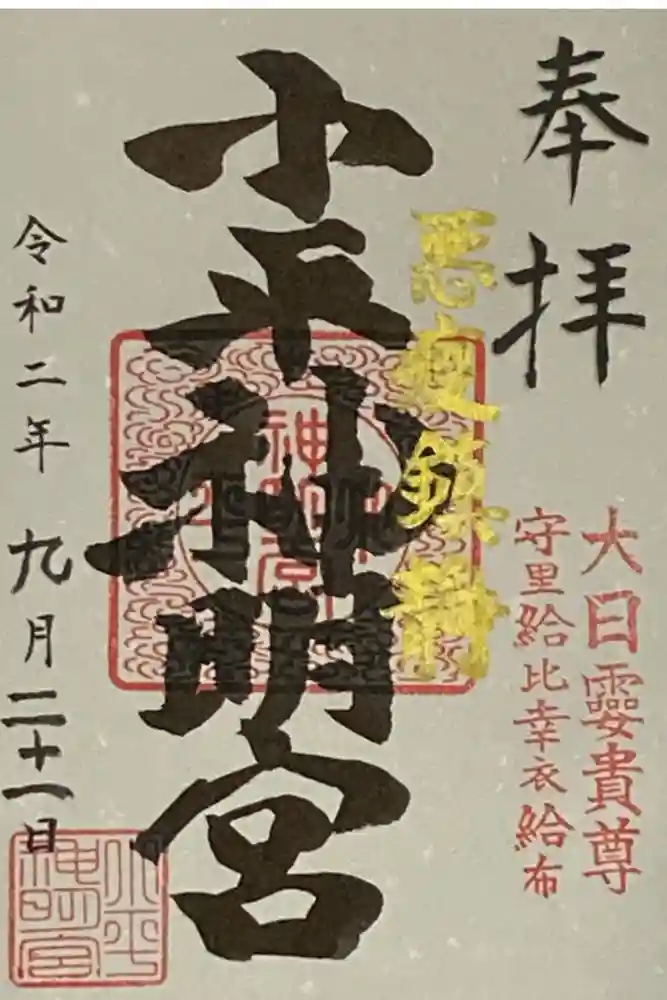 奉拝
大日孁貴尊
守里給比幸衣給布
悪疫鎮静
小平神明宮
令和二年九月二十一日
小平
神明宮